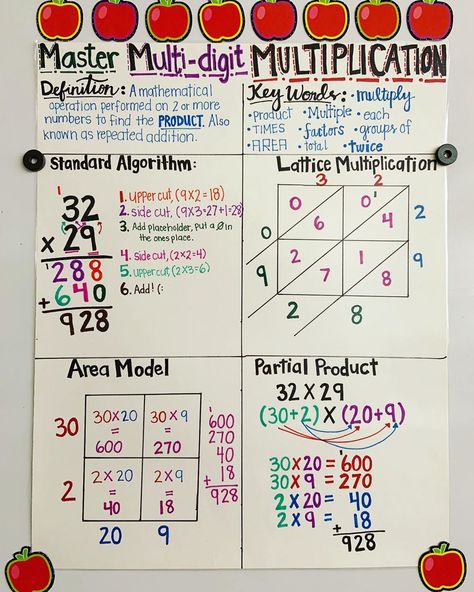 Master Multi-digit MULTIPLICATION
Definition: A mathematical
operation performed on 2 or more
numbers to find the PRODUCT. Also
known as repeated addition.
Key Words: • multiply
• Product • Multiple • each
• TIMES • factors • groups of
• AREA • total • twice
Standard Algorithm:
1
32
x 29
1288
+ 640
928
1. Upper cut, (9x2=18)
2. side cut, (9x3=27+1=28)
3. Add placeholder, put a 0 in
the ones place.
4. side cut, (2x2=4)
5. uppercut, (2x3=6)
6. Add! (:
Lattice Multiplication
3 2
0 6 0 1 4 2
2 7 1 8 9
0
9
2 8
Area Model
30 30x20 = 600 30x9 = 270
2 2x20 = 40 2x9 = 18
20 9
1
600
270
40
+ 18
928
Partial Product
32 X 29
(30+2) X (20+9)
1
30X20 = 600
30X9 = 270
2X20 = 40
2X9 = 18
+
928